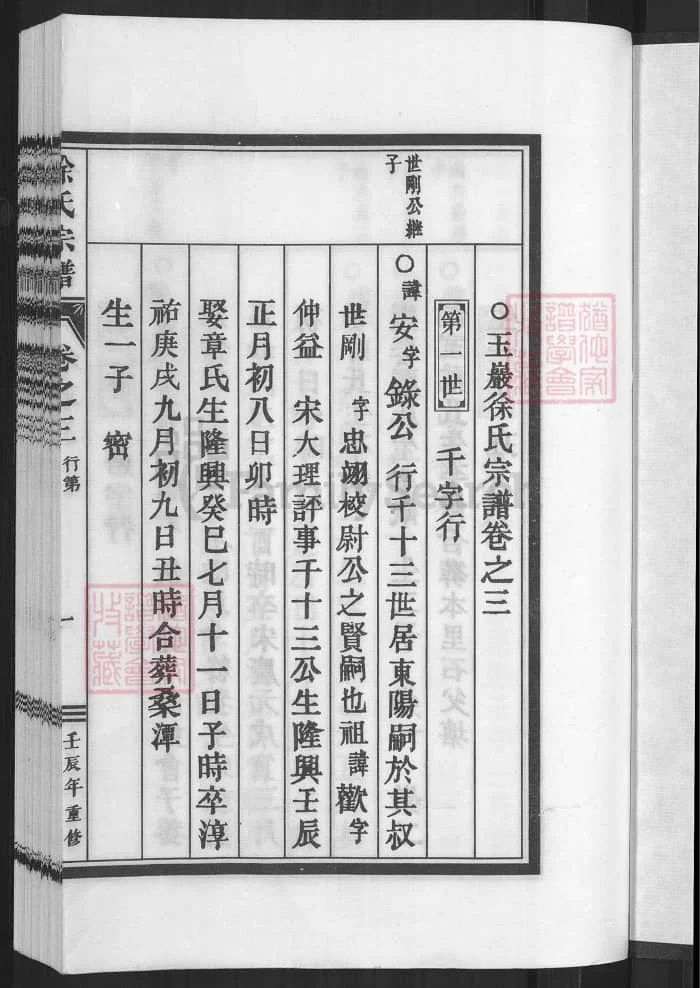 ○玉巖徐氏宗譜卷之三
第一世 千字行
世剛公繼
子
○諱安字錄公 行千十三世居東陽嗣於其叔
世剛 字忠翊校尉公之賢嗣也祖諱歡字
仲益 宋大理評事千十三公生隆興壬辰
正月初八日卯時
娶章氏生隆興癸巳七月十一日子時卒淳
祐庚戌九月初九日丑時合葬桑潭
生一子 密
徐氏宗譜 卷之三 行第 一 壬辰年重修